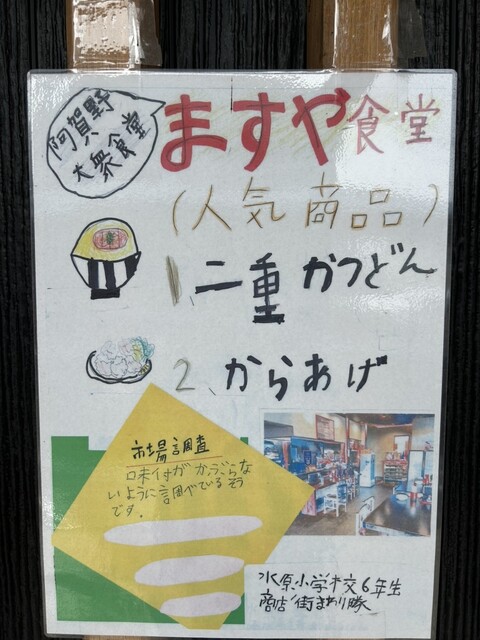 阿賀野
大衆食堂
ますや食堂
(人気商品)
1、二重かつどん
2、からあげ
市場調査
味付がかぶらな
いように調べているそう
です。
水原小学校6年生
商店街まわり隊